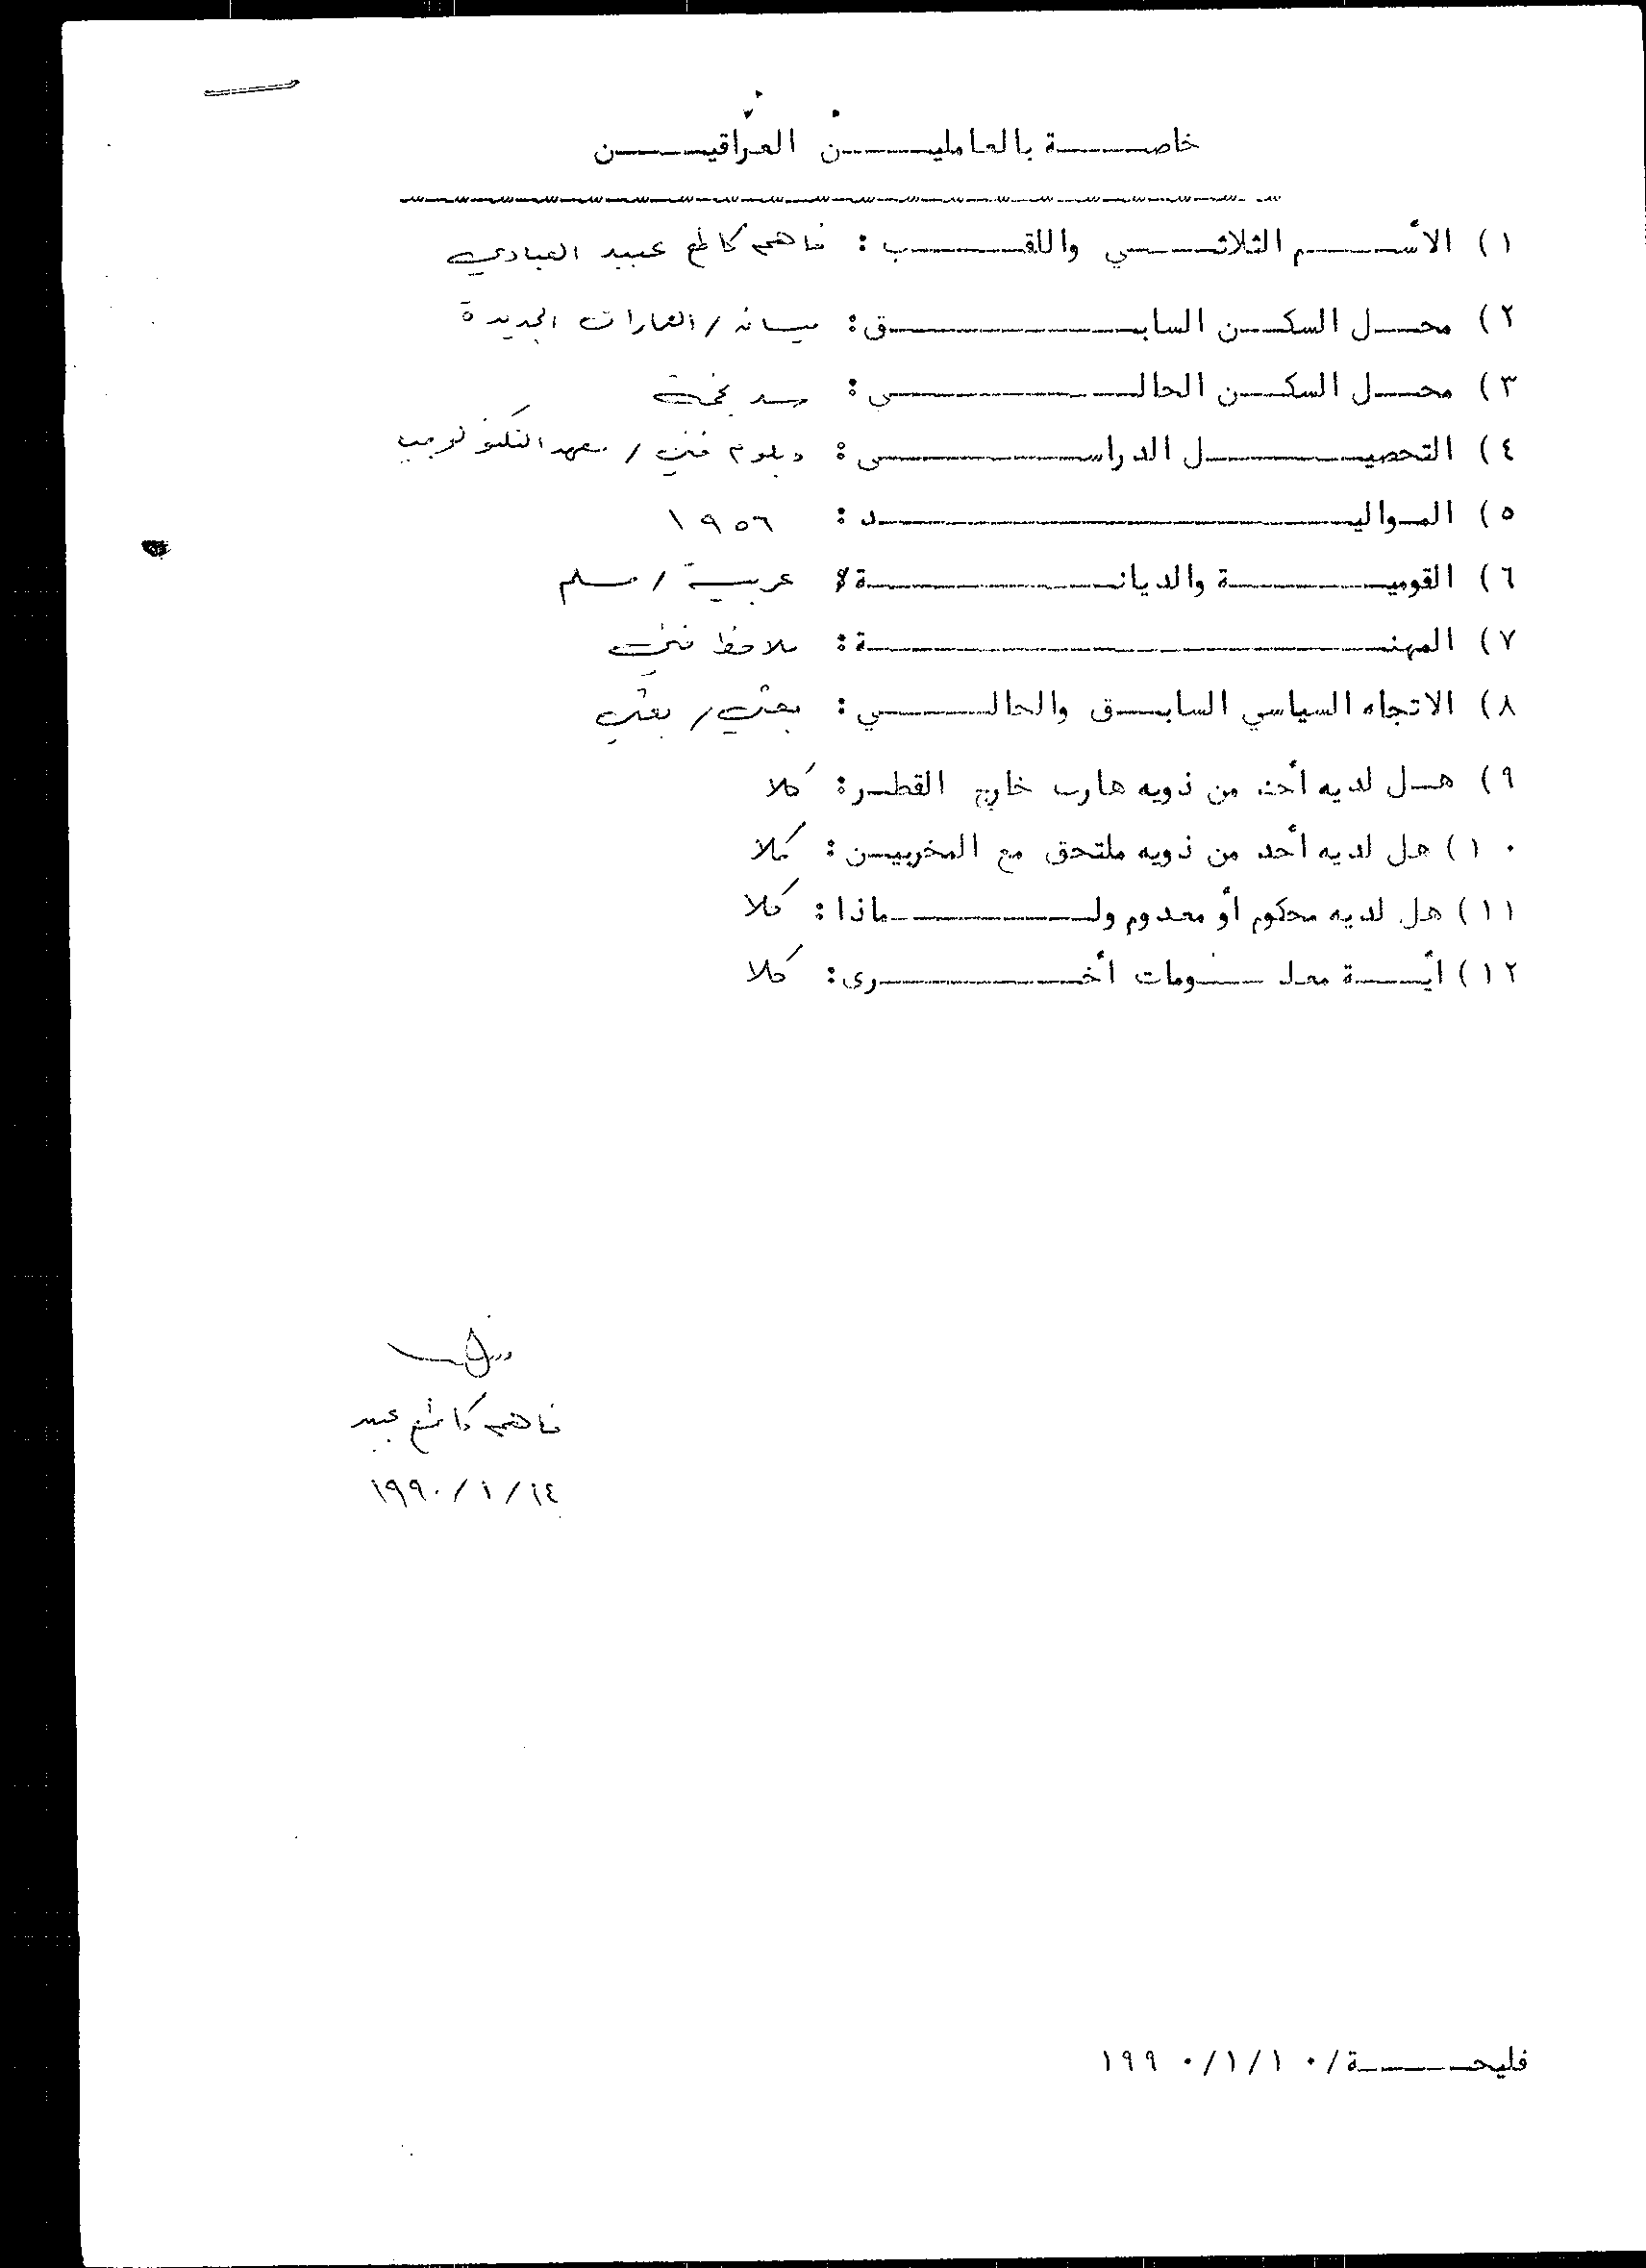 خاصة بالعاملين العراقيين
١) الأسم الثلاثي واللقب : فاهم كاطع عبيد العبادي
٢) محل السكن السابق : ميسان / العمارات الجديدة
٣) محل السكن الحالي : سد بخمة
٤) التحصيل الدراسي : دبلوم فني / معهد التكنولوجيا
٥) المواليد : ١٩٥٦
٦) القومية والديانة : عربية / مسلم
٧) المهنة : ملاحظ فني
٨) الاتجاه السياسي السابق والحالي : بعثي / بعثي
٩) هل لديه أحد من ذويه هارب خارج القطر : كلا
١٠) هل لديه أحد من ذويه ملتحق مع المخربين : كلا
١١) هل لديه محكوم أو معدوم ولماذا : كلا
١٢) أية معلومات أخرى : كلا
فاهم كاطع عبيد
١٤ / ١ / ١٩٩٠
فليحة / ١٠ / ١ / ١٩٩٠